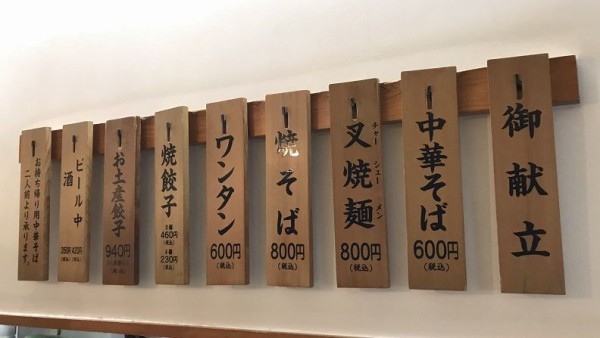 御献立
中華そば
600円
(税込)
叉焼麺
チャーシューメン
800円
(税込)
焼そば
800円
(税込)
ワンタン
600円
(税込)
焼餃子
460円
(税込)
230円
(税込)
お土産餃子
940円
(税込)
ビール中
420円
(税込)
酒
350円
(税込)
お持ち帰り用中華そば
二人前より承ります。